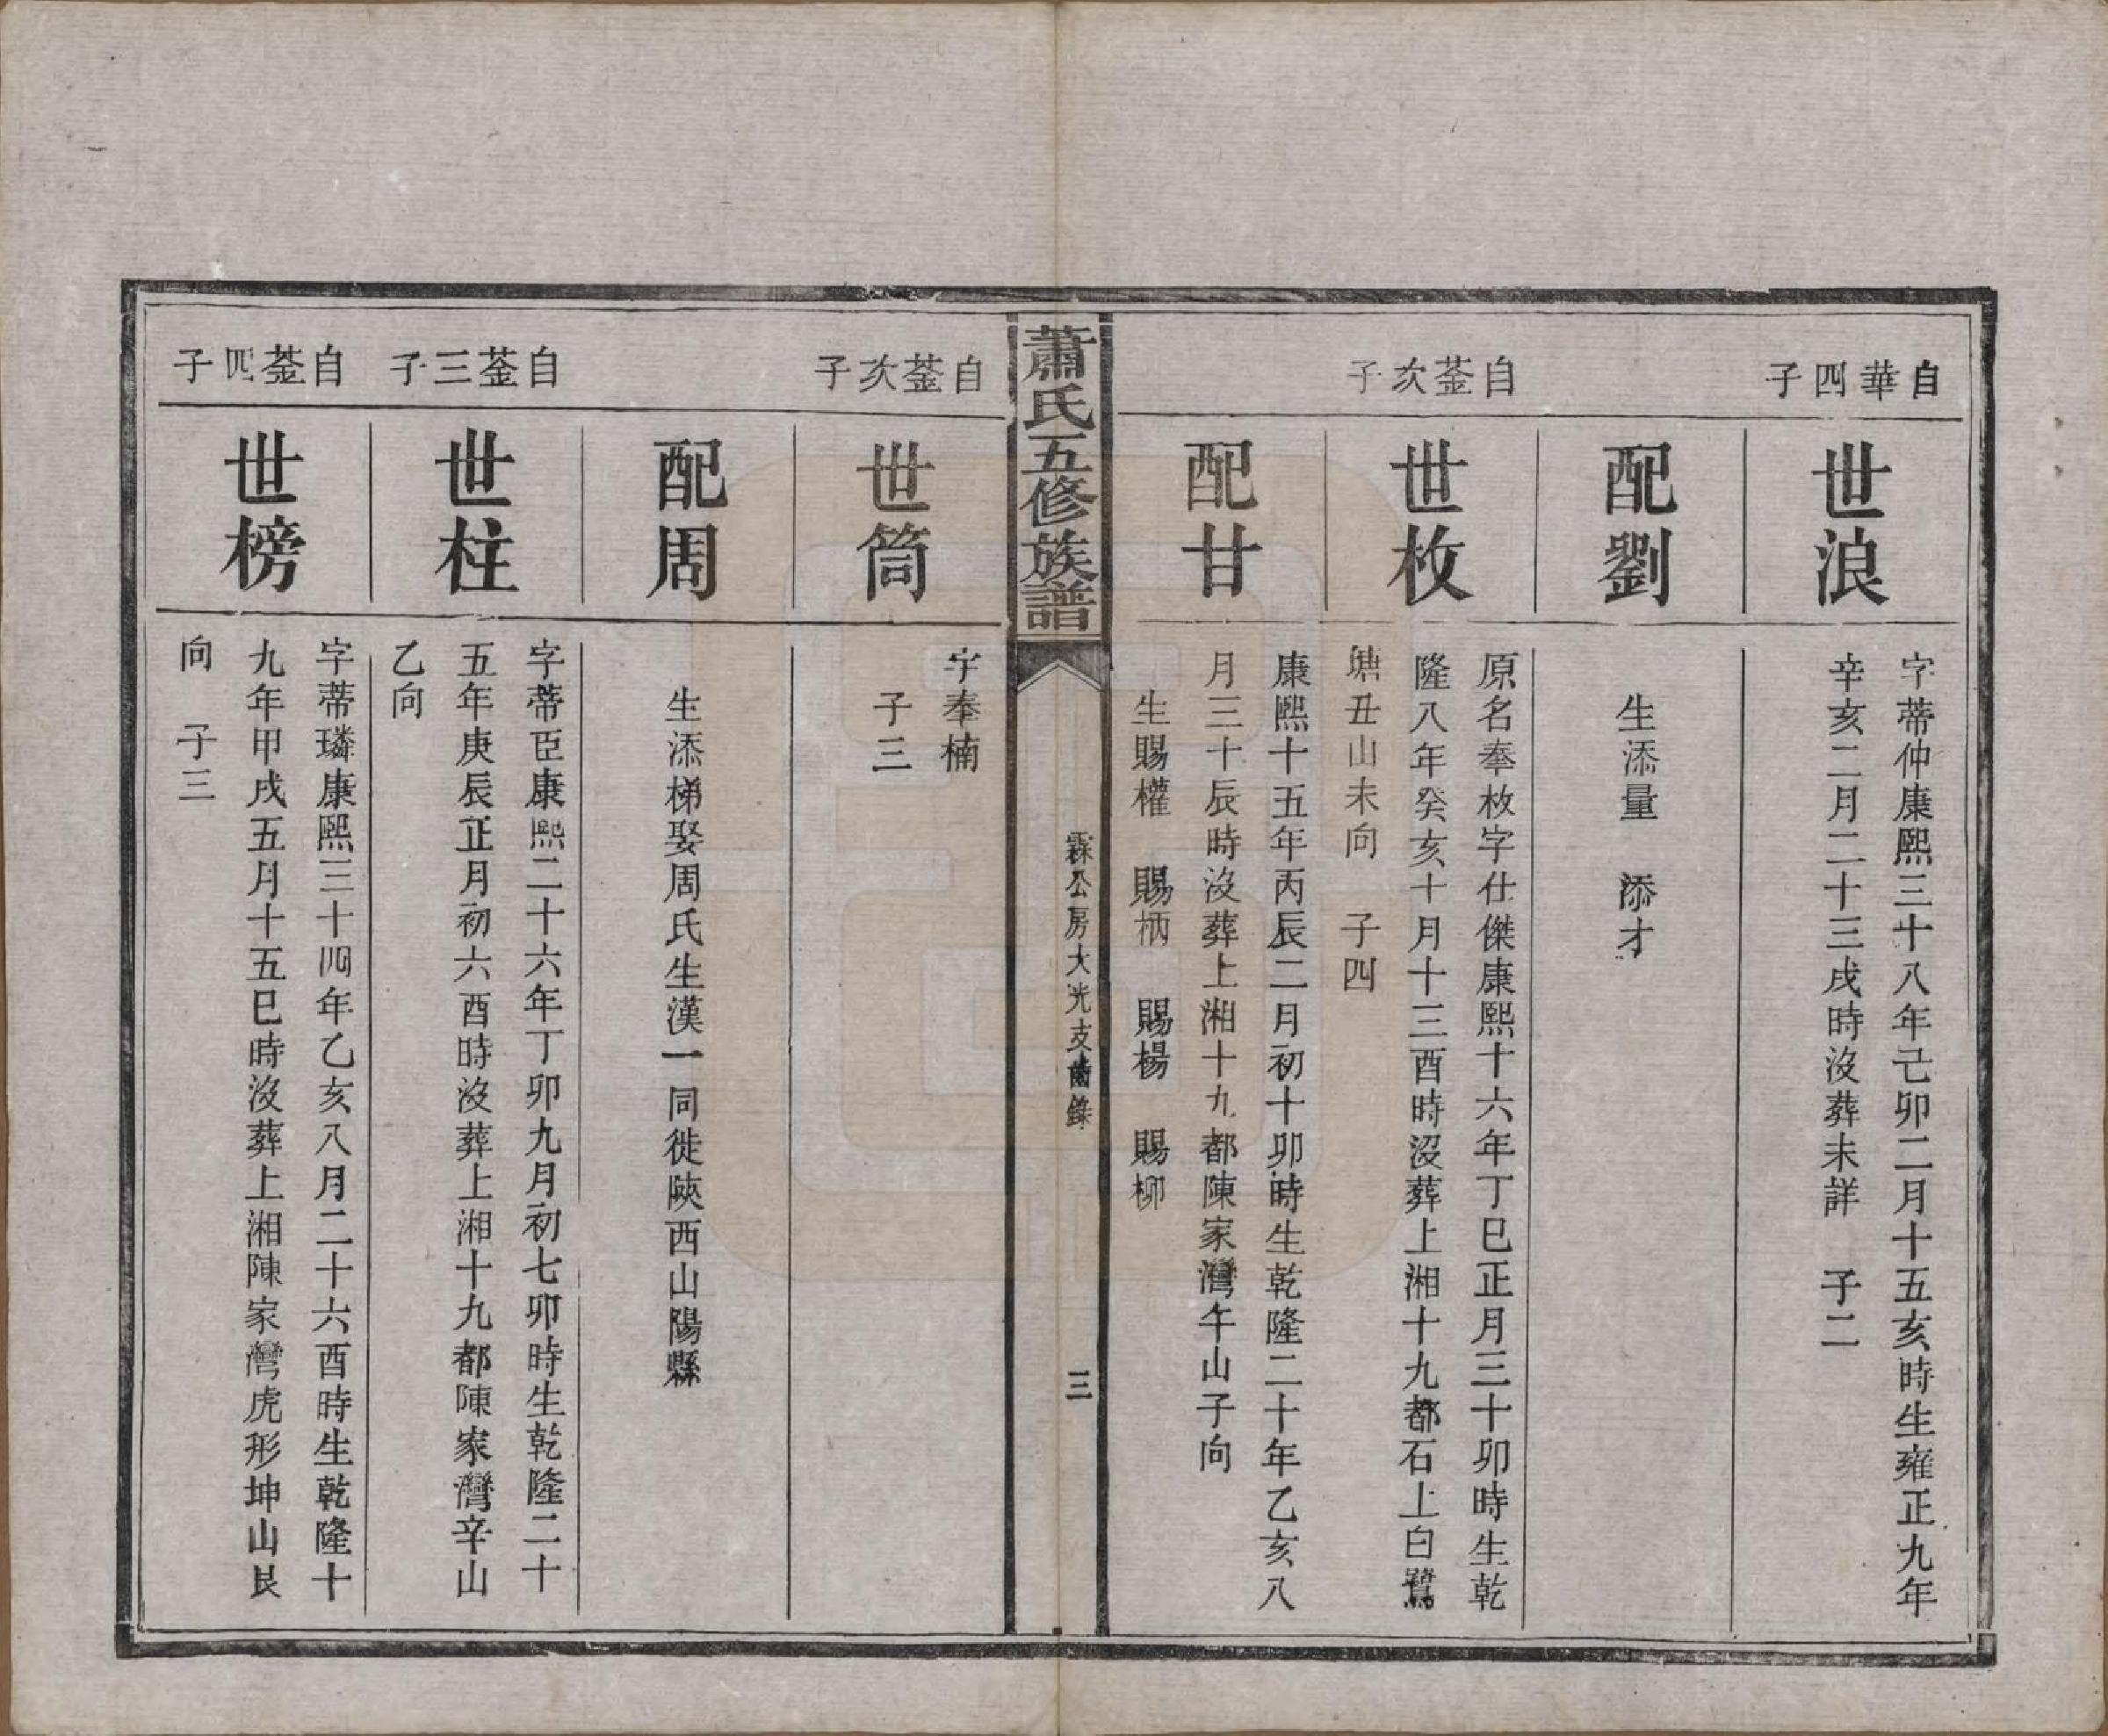 自華四子
世浪
字蒂仲康熙三十八年己卯二月十五亥時生雍正九年
辛亥二月二十三戌時沒葬未詳　子二
配劉
生添量　添才
自蓥次子
世枚
原名奉枚字仕傑康熙十六年丁巳正月三十卯時生乾
隆八年癸亥十月十三酉時沒葬上湘十九都石上白鷺
塘丑山未向　子四
配甘
康熙十五年丙辰二月初十卯時生乾隆二十年乙亥八
月三十辰時沒葬上湘十九都陳家灣午山子向
生賜權　賜柄　賜楊　賜柳
蕭氏五修族譜
霖公房大光支齒錄
三
自蓥次子
世筒
字奉楠
子三
配周
生添梯娶周氏生漢一同徙陝西山陽縣
自蓥三子
世柱
字蒂臣康熙二十六年丁卯九月初七卯時生乾隆二十
五年庚辰正月初六酉時沒葬上湘十九都陳家灣辛山
乙向
自蓥四子
世榜
字蒂璘康熙三十四年乙亥八月二十六酉時生乾隆十
九年甲戌五月十五巳時沒葬上湘陳家灣虎形坤山艮
向　子三